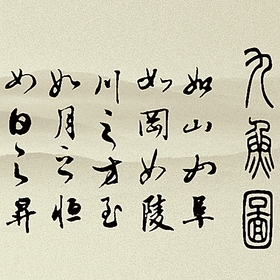 九魚圖
如山如阜
如岡如陵
川之方至
如月之恒
如日之昇